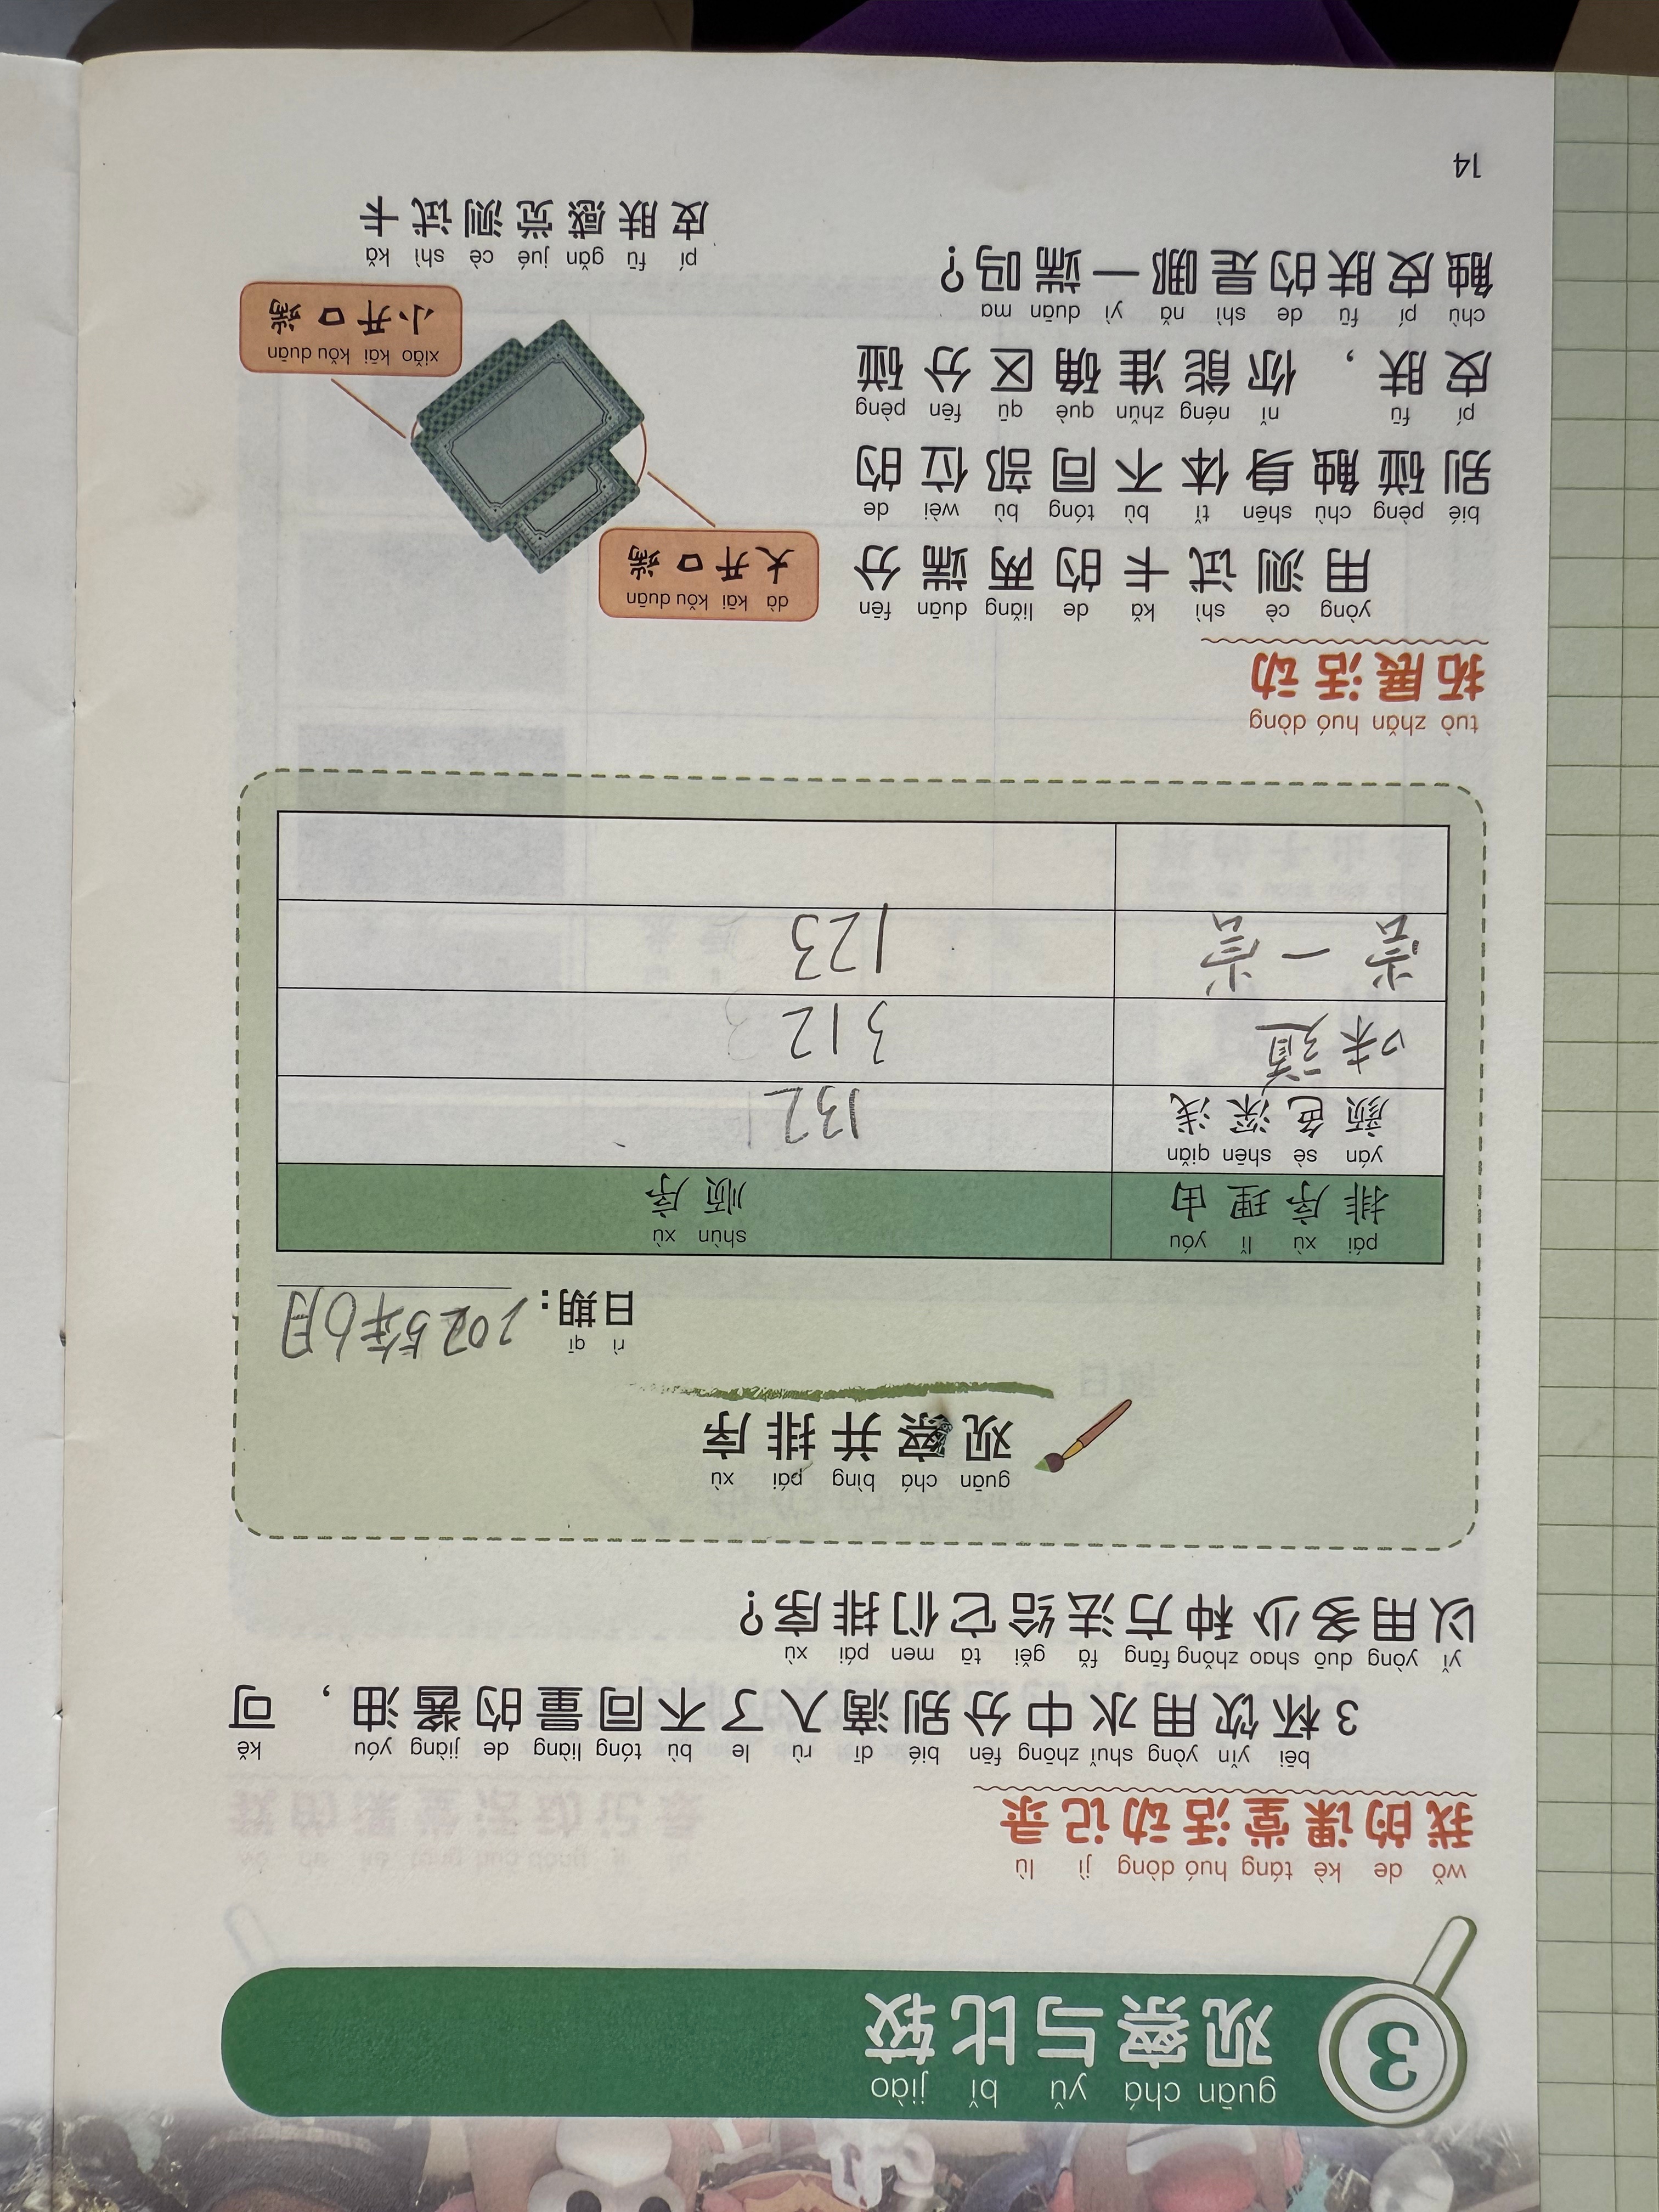 3
guān chá yǔ bǐ jiào
观察与比较
wǒ de kè táng huó dòng jì lù
我的课堂活动记录
bēi yǐn yòng shuǐ zhōng fēn bié dī rù le bù tóng liàng de jiàng yóu kě
3杯饮用水中分别滴入了不同量的酱油，可
yǐ yòng duō shao zhǒng fāng fǎ gěi tā men pái xù
以用多少种方法给它们排序？
guān chá bìng pái xù
观察并排序
rì qī
日期：2025年6月
pái xù lǐ yóu shùn xù
排序理由 顺序
yán sè shēn qiǎn
颜色深浅 132
味道 312
尝一尝 123
tuò zhǎn huó dòng
拓展活动
yòng cè shì kǎ de liǎng duān fēn
用测试卡的两端分
bié pèng chù shēn tǐ bù tóng bù wèi de
别碰触身体不同部位的
pí fū nǐ néng zhǔn què qū fēn pèng
皮肤，你能准确区分碰
chù pí fū de shì nǎ yì duān ma
触皮肤的是哪一端吗？
dà kāi kǒu duān
大开口端
xiǎo kāi kǒu duān
小开口端
pí fū gǎn jué cè shì kǎ
皮肤感觉测试卡
14